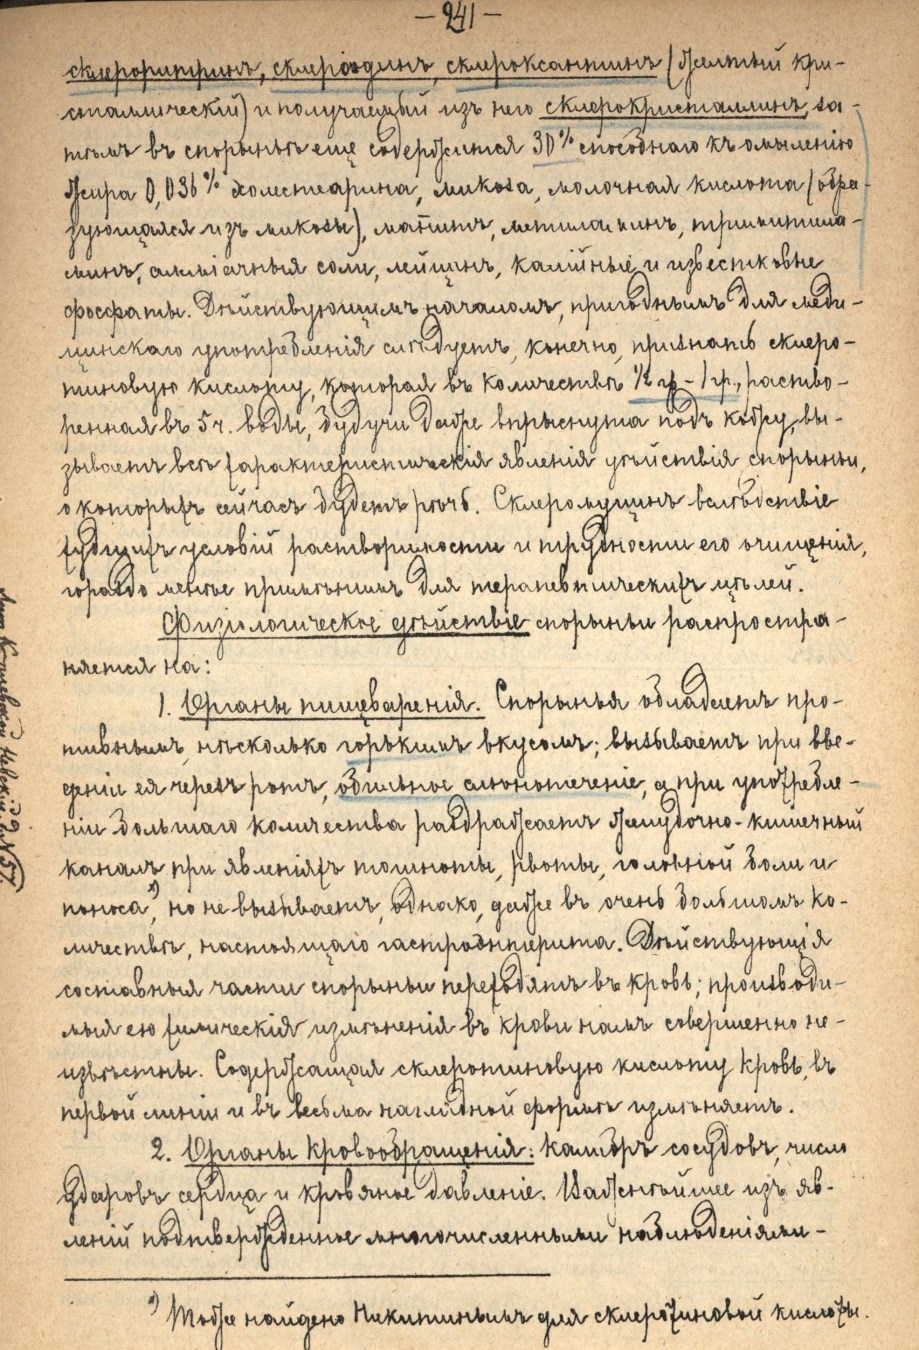 — 241 —
склероритринъ, склеріодинъ, склероксантинъ (желтый кри-
сталлическій) и получаемый изъ него склерокристаллинъ, за-
тѣмъ въ спорыньѣ еще содержится 30% способнаго къ омыленію
жира 0,036% холестеарина, микоза, молочная кислота (обра-
зующаяся изъ микозы), манитъ, метиламинъ, триметила-
минъ, амміачныя соли, лейцинъ, калійные и известковые
фосфаты. Дѣйствующимъ началомъ, пригоднымъ для меди-
цинскаго употребленія слѣдуетъ, конечно, признать склеро-
тиновую кислоту, которая въ количествѣ ½ гр - 1 гр., раство-
ренная въ 5 ч. воды, будучи даже впрыснута подъ кожу, вы-
зываетъ всѣ характеристическія явленія дѣйствія спорыньи,
о которыхъ сейчасъ будетъ рѣчь. Склеромуцинъ вслѣдствіе
худшихъ условій растворимости и трудности его очищенія,
гораздо менѣе примѣнимъ для терапевтическихъ цѣлей.
Физіологическое дѣйствіе спорыньи распростра-
няется на:
1. Органы пищеваренія. Спорынья обладаетъ про-
тивнымъ, нѣсколько горькимъ вкусомъ; вызываетъ при вве-
деніи ея черезъ ротъ, обильное слюнотеченіе, а при употребле-
ніи большаго количества раздражаетъ желудочно-кишечный
каналъ при явленіяхъ тошноты, рвоты, головной боли и
поноса, но не вызываетъ, однако, даже въ очень большомъ ко-
личествѣ, настоящаго гастроэнтерита. Дѣйствующія
составныя части спорыньи переходятъ въ кровь; производи-
мыя ею химическія измѣненія въ крови намъ совершенно не-
извѣстны. Содержащая склеротиновую кислоту кровь, въ
первой линіи и въ весьма наглядной формѣ измѣняетъ.
2. Органы кровообращенія: калибръ сосудовъ, число
ударовъ сердца и кровяное давленіе. Важнѣйшее изъ яв-
леній подтвержденное многочисленными наблюденіями -
Тоже найдено Никитинымъ для склеротиновой кислоты.